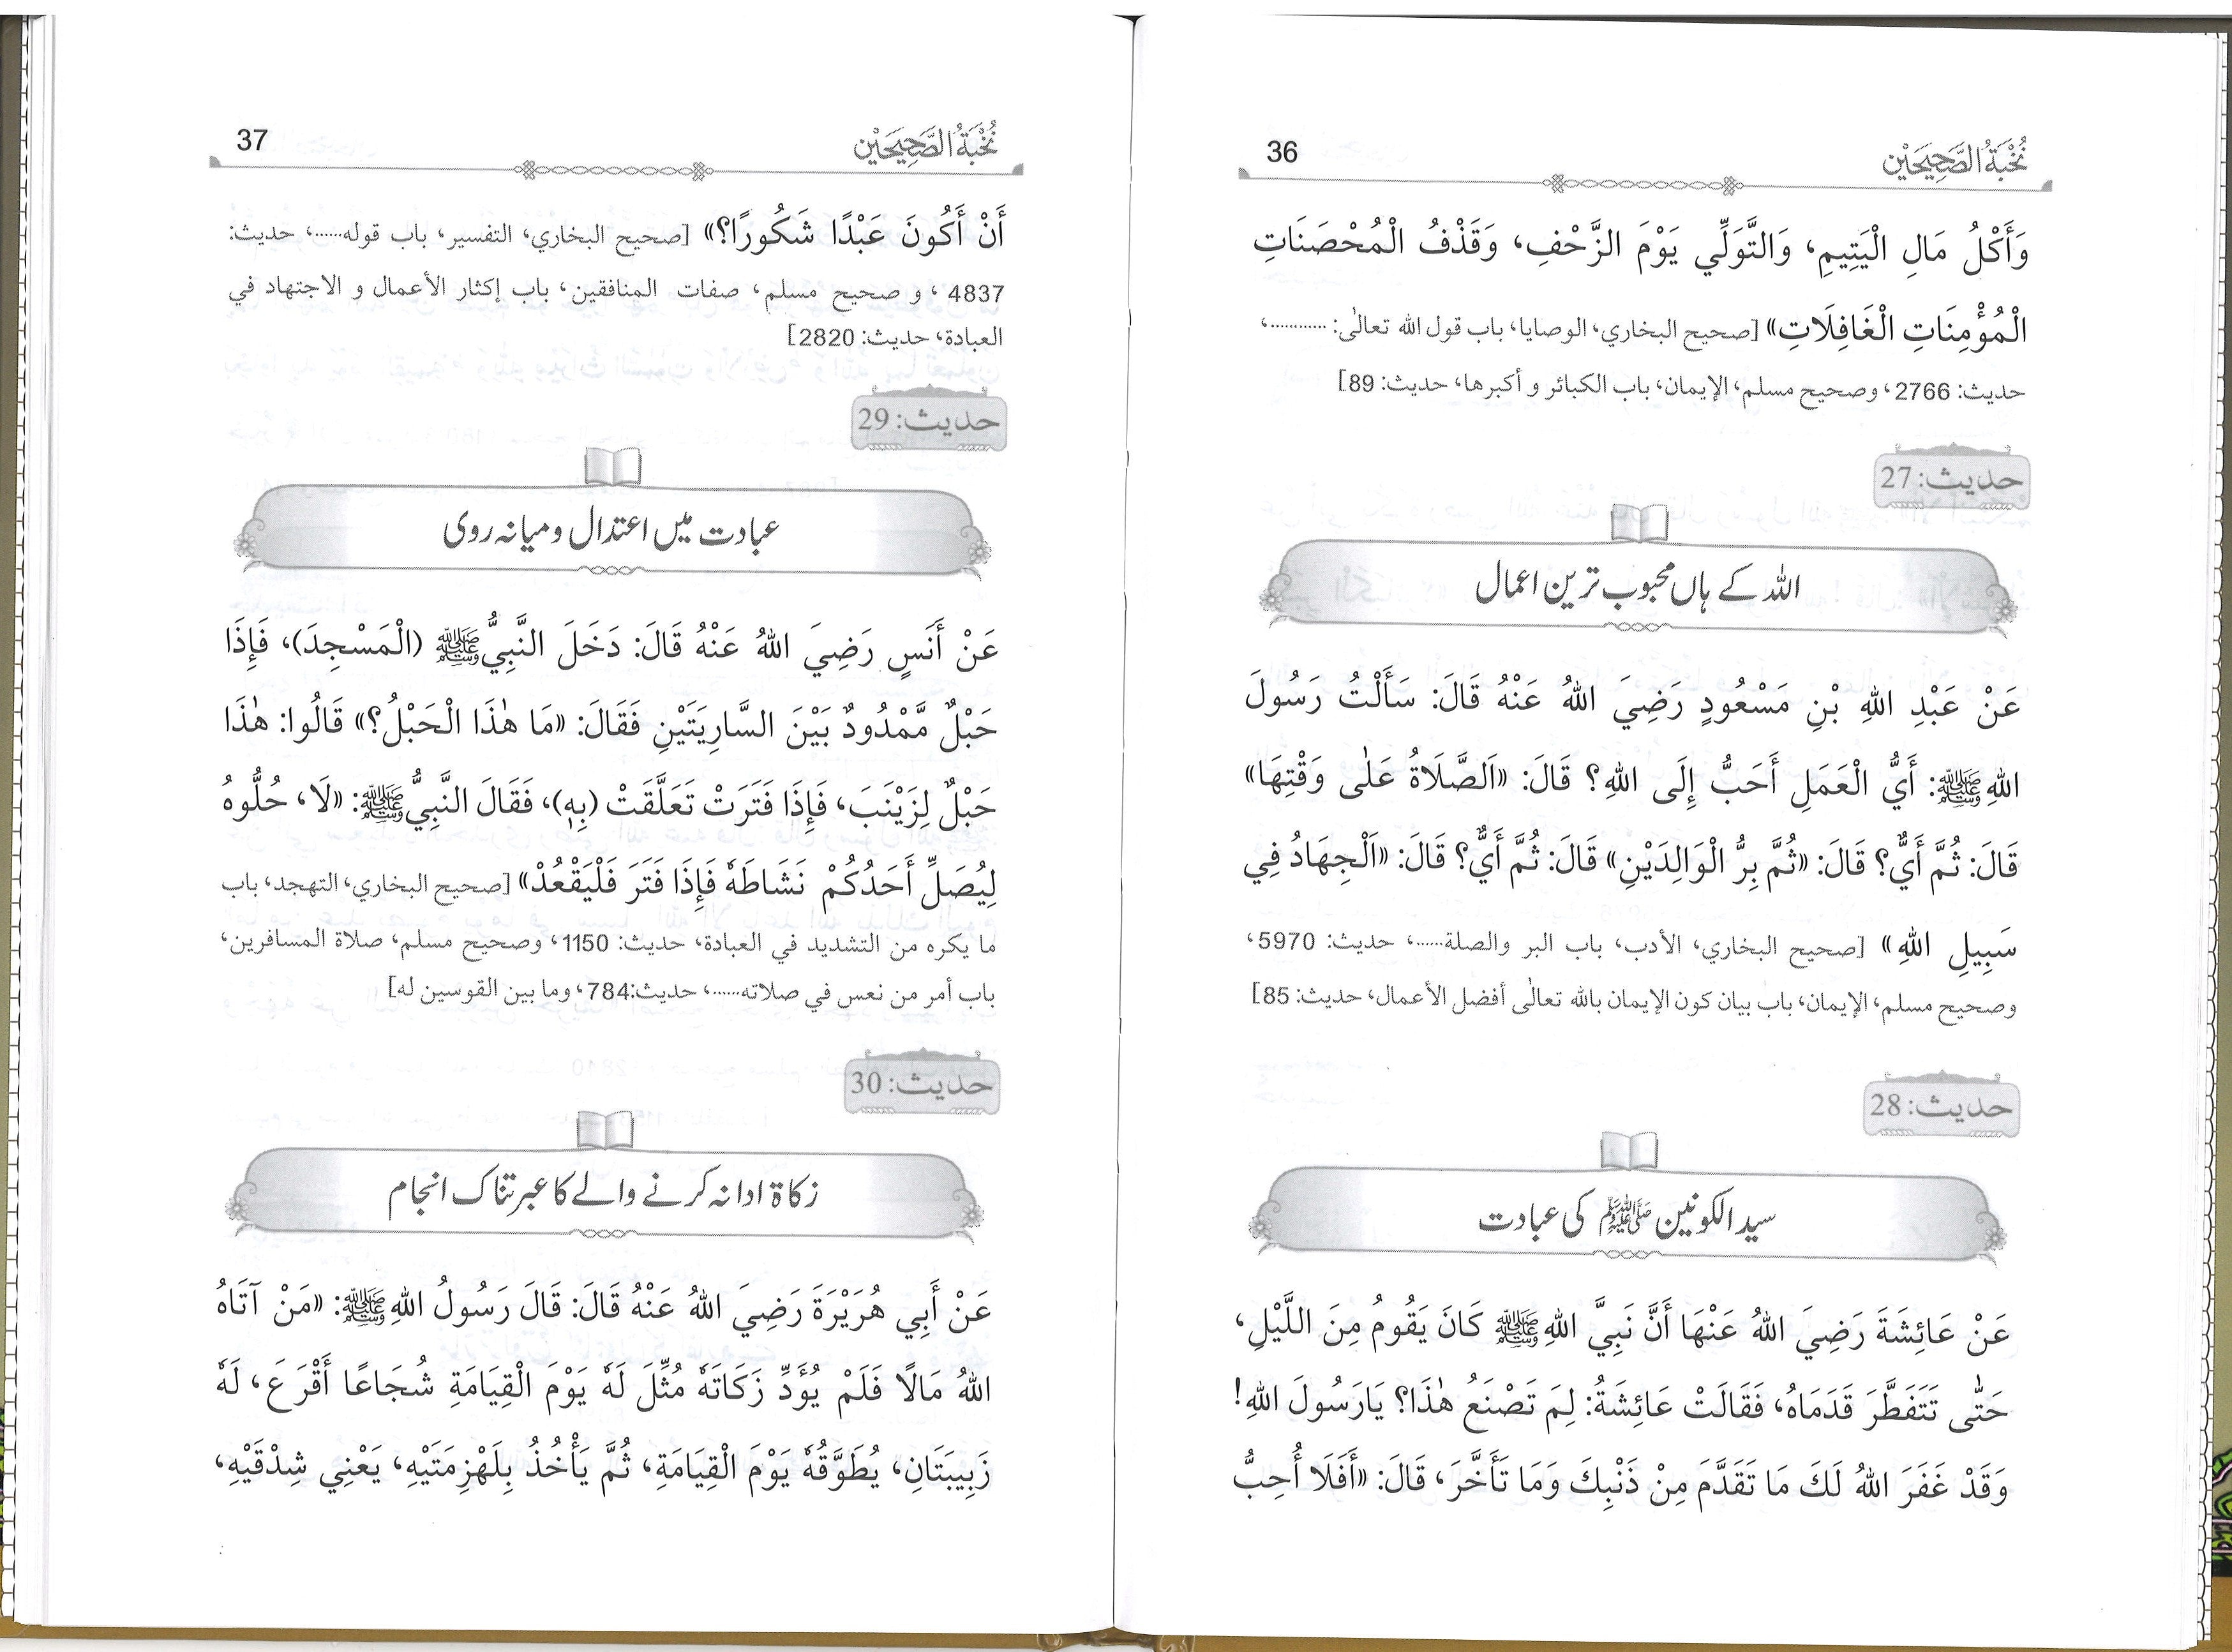 نُخْبَةُ الصَّحِيحَيْن
36
وَأَكْلُ مَالِ الْيَتِيمِ، وَالتَّوَلِّي يَوْمَ الزَّحْفِ، وَقَذْفُ الْمُحْصَنَاتِ
الْمُؤْمِنَاتِ الْغَافِلَاتِ» [صحيح البخاري، الوصايا، باب قول الله تعالٰى: ............،
حديث: 2766، وصحيح مسلم، الإيمان، باب الكبائر و أكبرها، حديث: 89]
حديث: 27
اللہ کے ہاں محبوب ترین اعمال
عَنْ عَبْدِ اللهِ بْنِ مَسْعُودٍ رَضِيَ اللهُ عَنْهُ قَالَ: سَأَلْتُ رَسُولَ
اللهِ ﷺ: أَيُّ الْعَمَلِ أَحَبُّ إِلَى اللهِ؟ قَالَ: «اَلصَّلَاةُ عَلٰى وَقْتِهَا»
قَالَ: ثُمَّ أَيٌّ؟ قَالَ: «ثُمَّ بِرُّ الْوَالِدَيْنِ» قَالَ: ثُمَّ أَيٌّ؟ قَالَ: «اَلْجِهَادُ فِي
سَبِيلِ اللهِ» [صحيح البخاري، الأدب، باب البر والصلة......، حديث: 5970،
وصحيح مسلم، الإيمان، باب بيان كون الإيمان بالله تعالٰى أفضل الأعمال، حديث: 85]
حديث: 28
سید الکونین ﷺ کی عبادت
عَنْ عَائِشَةَ رَضِيَ اللهُ عَنْهَا أَنَّ نَبِيَّ اللهِ ﷺ كَانَ يَقُومُ مِنَ اللَّيْلِ،
حَتّٰى تَتَفَطَّرَ قَدَمَاهُ، فَقَالَتْ عَائِشَةُ: لِمَ تَصْنَعُ هٰذَا؟ يَارَسُولَ اللهِ!
وَقَدْ غَفَرَ اللهُ لَكَ مَا تَقَدَّمَ مِنْ ذَنْبِكَ وَمَا تَأَخَّرَ، قَالَ: «أَفَلَا أُحِبُّ
نُخْبَةُ الصَّحِيحَيْن
37
أَنْ أَكُونَ عَبْدًا شَكُورًا؟» [صحيح البخاري، التفسير، باب قوله......، حديث:
4837 ، و صحيح مسلم، صفات المنافقين، باب إكثار الأعمال و الاجتهاد في
العبادة، حديث: 2820]
حديث: 29
عبادت میں اعتدال و میانہ روی
عَنْ أَنَسٍ رَضِيَ اللهُ عَنْهُ قَالَ: دَخَلَ النَّبِيُّ ﷺ (الْمَسْجِدَ)، فَإِذَا
حَبْلٌ مَّمْدُودٌ بَيْنَ السَّارِيَتَيْنِ فَقَالَ: «مَا هٰذَا الْحَبْلُ؟» قَالُوا: هٰذَا
حَبْلٌ لِزَيْنَبَ، فَإِذَا فَتَرَتْ تَعَلَّقَتْ (بِهٖ)، فَقَالَ النَّبِيُّ ﷺ: «لَا، حُلُّوهُ
لِيُصَلِّ أَحَدُكُمْ نَشَاطَهٗ فَإِذَا فَتَرَ فَلْيَقْعُدْ» [صحيح البخاري، التهجد، باب
ما يكره من التشديد في العبادة، حديث: 1150، وصحيح مسلم، صلاة المسافرين،
باب أمر من نعس في صلاته......، حديث:784، وما بين القوسين له]
حديث: 30
زکاة ادا نہ کرنے والے کا عبرتناک انجام
عَنْ أَبِي هُرَيْرَةَ رَضِيَ اللهُ عَنْهُ قَالَ: قَالَ رَسُولُ اللهِ ﷺ: «مَنْ آتَاهُ
اللهُ مَالًا فَلَمْ يُؤَدِّ زَكَاتَهٗ مُثِّلَ لَهٗ يَوْمَ الْقِيَامَةِ شُجَاعًا أَقْرَعَ، لَهٗ
زَبِيبَتَانِ، يُطَوَّقُهٗ يَوْمَ الْقِيَامَةِ، ثُمَّ يَأْخُذُ بِلَهْزِمَتَيْهِ، يَعْنِي شِدْقَيْهِ،